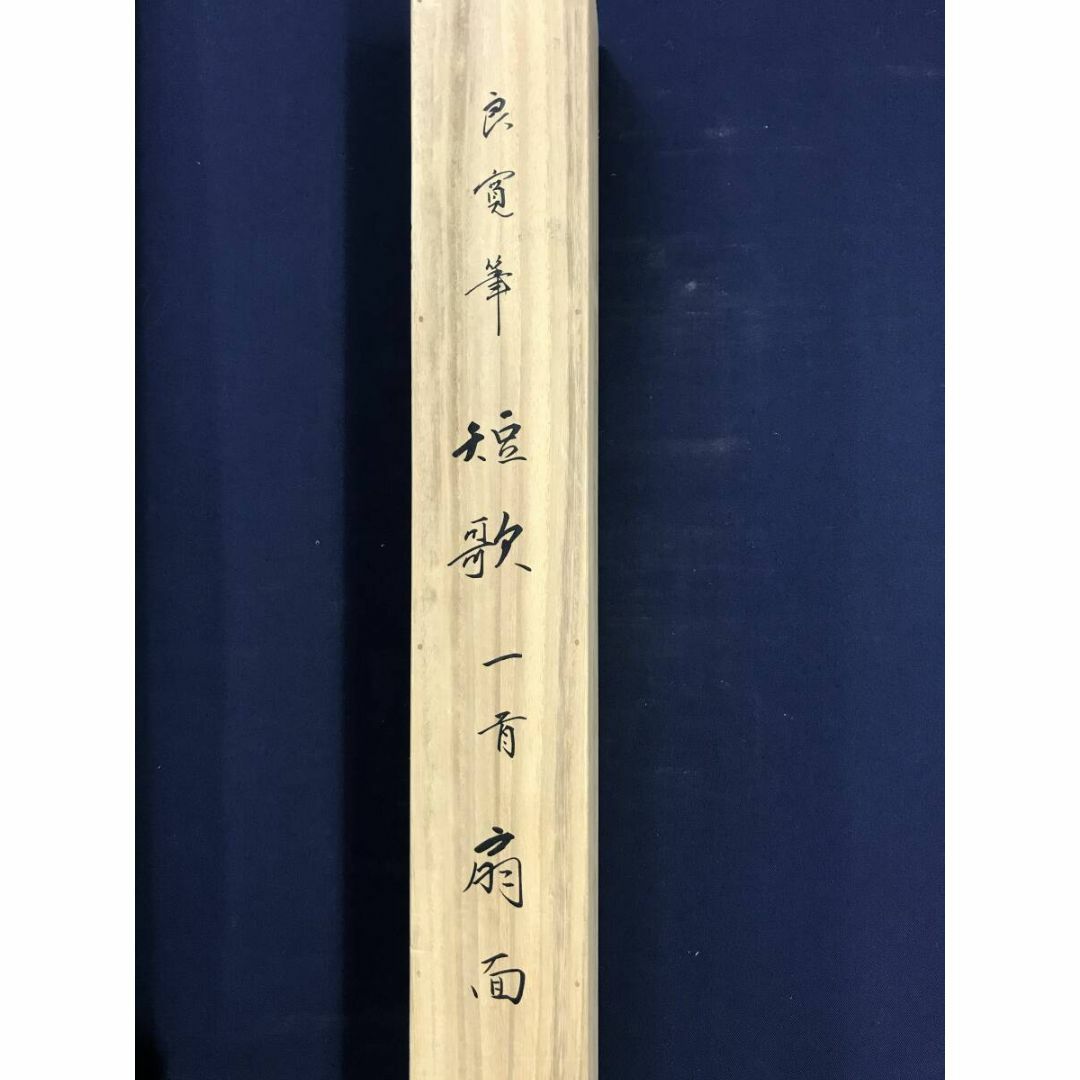 良寛筆短歌一首扇面